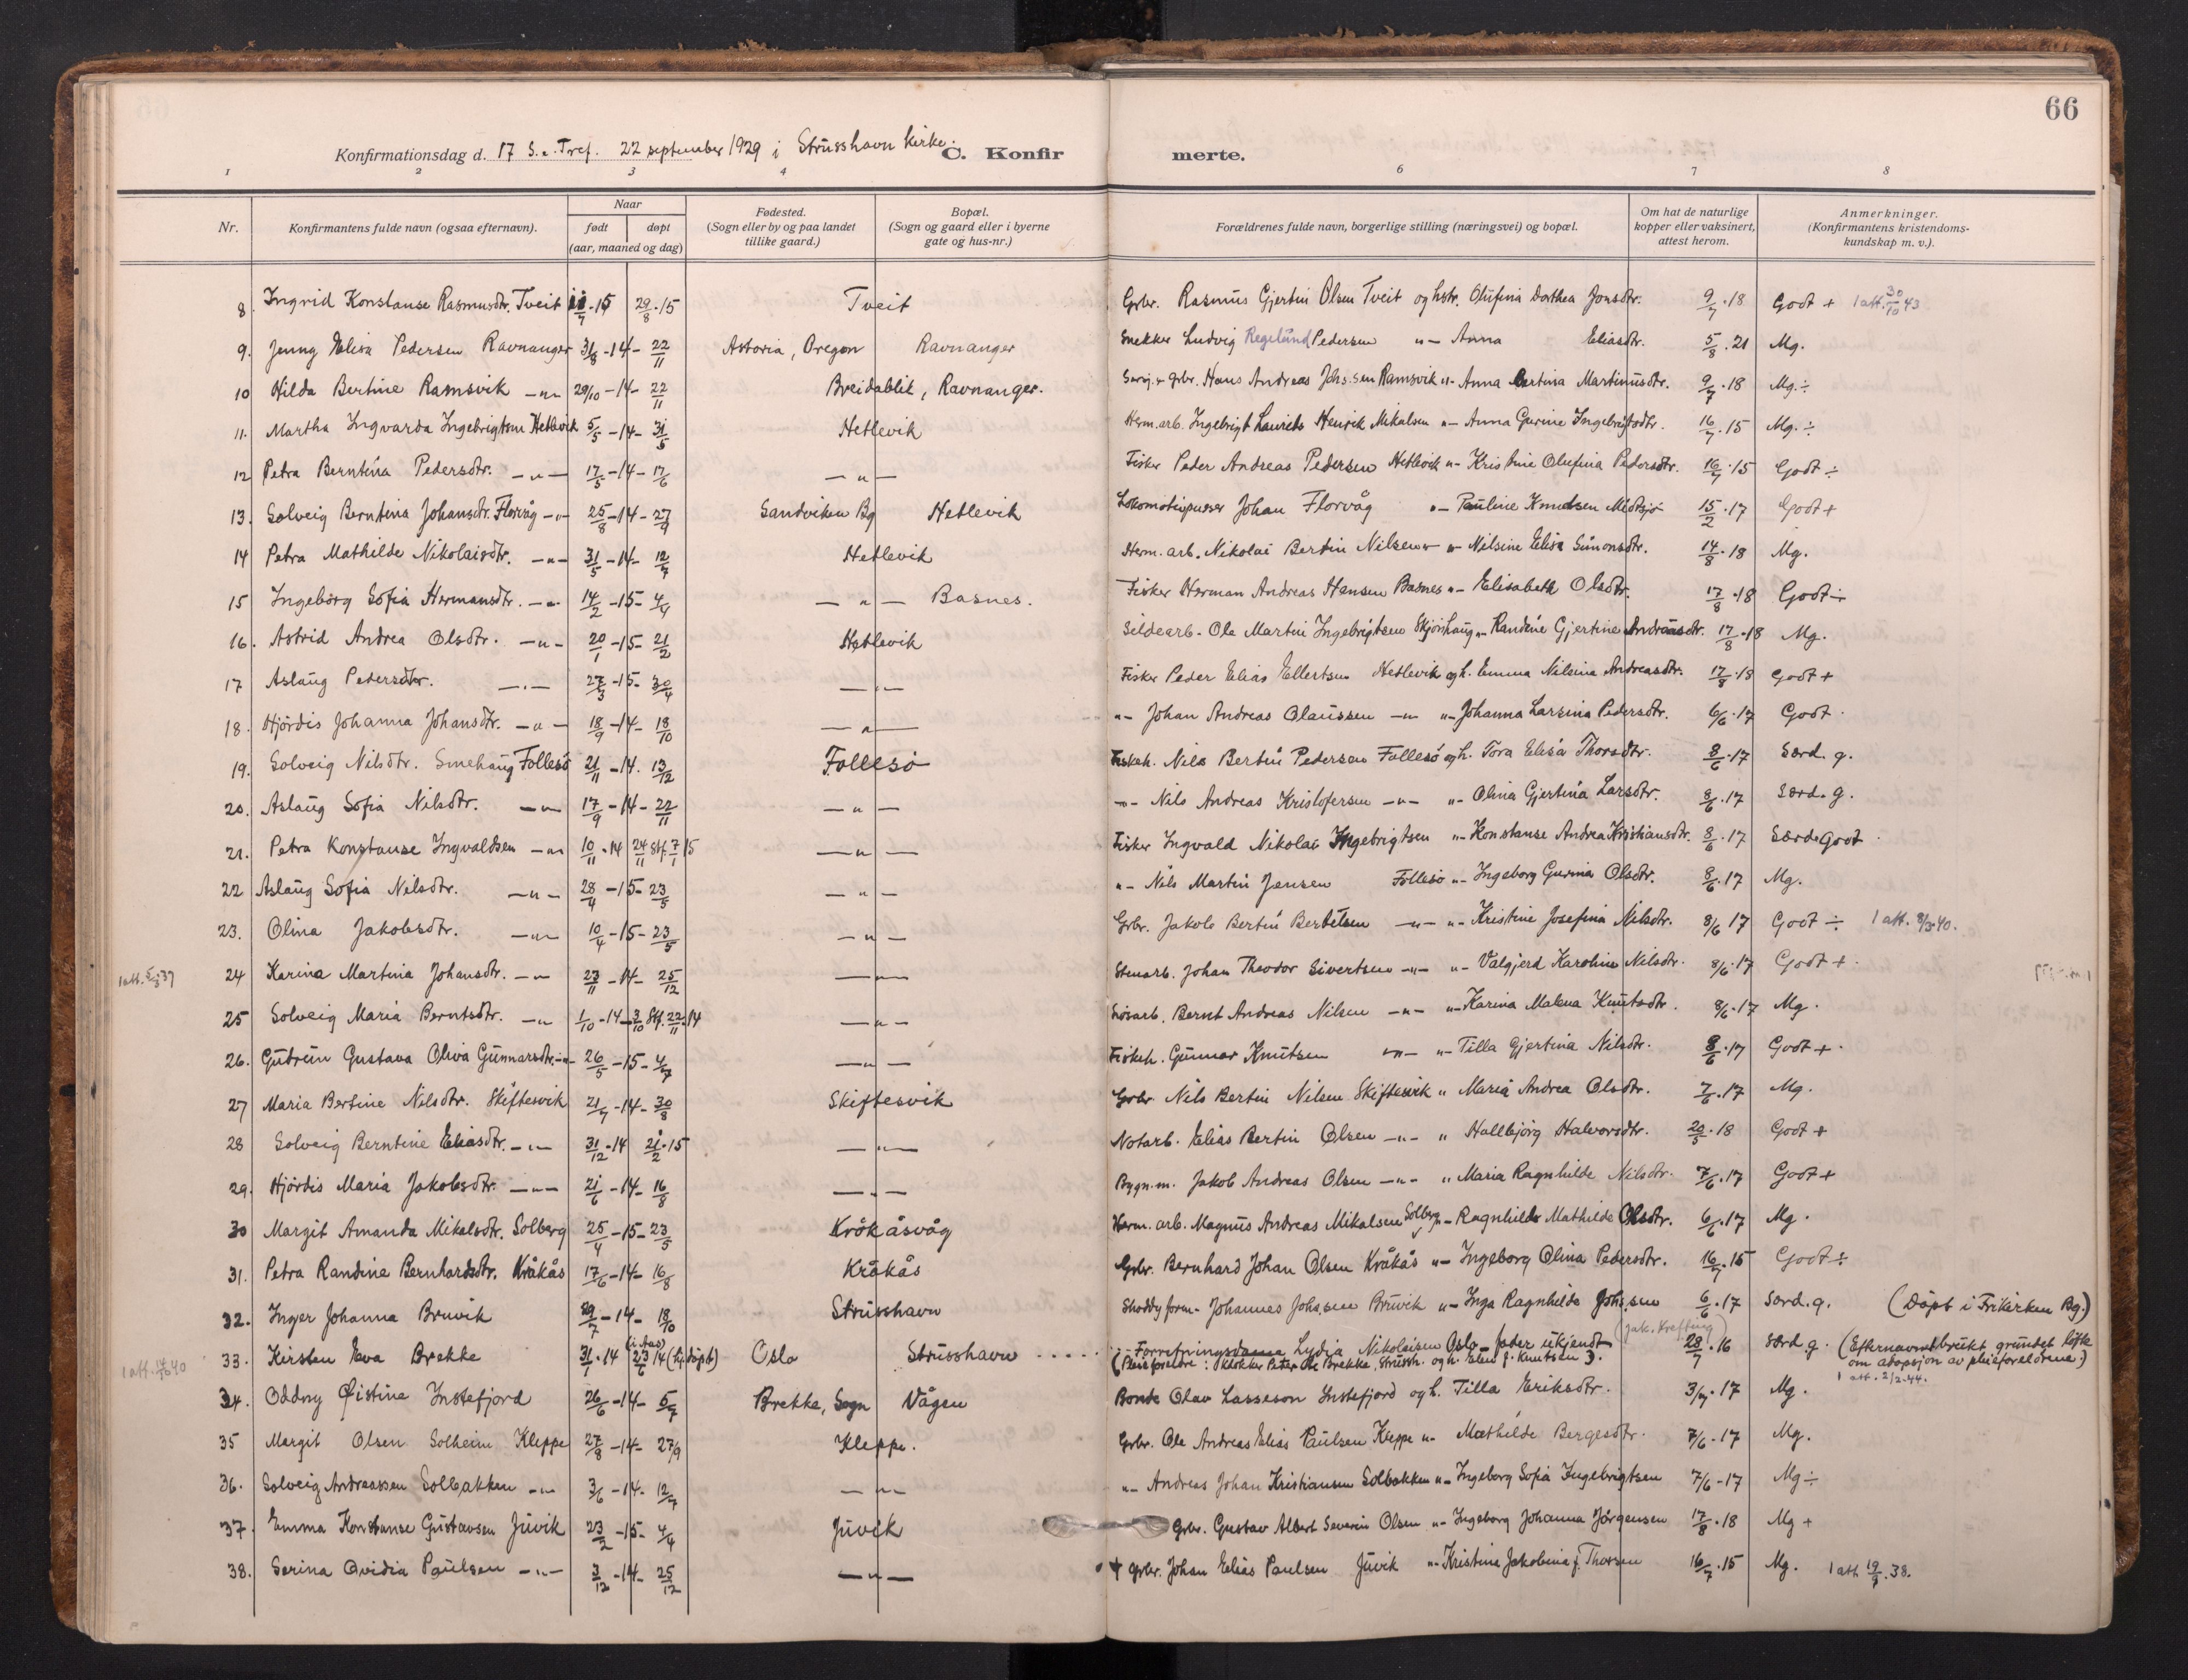 66
Konfirmationsdag d. 17 S. e. Tref. 22 september 1929 i Strusshavn kirke. C. Konfirmerte.
1 2 3 4 6 7 8
Nr. Konfirmantens fulde navn (ogsaa efternavn). Naar født døpt (aar, maaned og dag) Fødested. (Sogn eller by og paa landet tillike gaard.) Bopæl. (Sogn og gaard eller i byerne gate og hus-nr.) Forældrenes fulde navn, borgerlige stilling (næringsvei) og bopæl. Om hat de naturlige kopper eller vaksinert, attest herom. Anmerkninger. (Konfirmantens kristendomskundskap m. v.).
8. Ingrid Konstanse Rasmusdtr. Tveit 11/7-15 29/8-15 Tveit Grbr. Rasmus Gjertin Olsen Tveit og hstr. Olufina Dorthea Jonsdtr. 9/7.18 Godt + 1 att. 30/10 43
9. Jenny Elisa Pedersen Ravnanger 31/8-14- 22/11 Astoria, Oregon Ravnanger Snekker Ludvig Regelund Pedersen "- Anna Eliasdtr. 5/8.21 Mg.
10 Hilda Bertine Ramsvik -"- 29/10-14- 22/11 Breidablik, Ravnanger. Hans Andreas Johs.sen Ramsvik "- Anna Bertina Martinusdtr. 9/7.18 Mg.÷
11. Martha Ingvarda Ingebrigtsen Hetlevik 5/5-14- 31/5 Hetlevik Herm.arb. Ingebrigt Laurits Henrik Mikalsen "- Anna Gurine Ingebrigtsdtr. 16/7.15 Mg.÷
12 Petra Berntina Pedersdtr. -"- 17/5-14- 17/6 -"- Fisker Peder Andreas Pedersen Hetlevik "- Kristine Olufina Pedersdtr. 16/7.15 Godt ÷
13. Solveig Berntina Johansdtr. Florvåg -"- 25/8-14- 27/9 Sandviken Bg Hetlevik Lokomotivpusser Johan Florvåg "- Pauline Knudsen Medsjø 15/2.17 Godt +
14 Petra Mathilde Nikolaisdtr. -"- 31/5-14- 12/7 Hetlevik Herm. arb. Nikolai Bertin Nilsen "- Nilsine Elisa Simonsdtr. 14/8.18 Mg.
15 Ingeborg Sofia Hermansdtr. -"- 14/2-15- 4/4 -"- Basnes. Fisker Herman Andreas Hansen Basnes "- Elisabeth Olsdtr. 17/8.18 Godt ÷
16. Astrid Andrea Olsdtr. -"- 20/1-15- 21/2 Hetlevik Sildearb. Ole Martin Ingebrigtsen Skjönhaug "- Randine Gjertine Andreasdtr. 17/8.18 Mg.
17 Aslaug Pedersdtr. -"- 27/3-15- 30/4 -"- Fisker Peder Elias Ellertsen Hetlevik og h. Emma Nilsina Andreasdtr. 17/8.18 Godt +
18. Hjördis Johanna Johansdtr. -"- 18/9-14- 18/10 -"- "- Johan Andreas Olaussen -"- "- Johanna Larsina Pedersdtr. 6/6.17 Godt
19. Solveig Nilsdtr. Smehaug Follesö 21/11-14. 13/12 Follesö Fiskeh. Nils Bertin Pedersen Follesö og h. Tora Elisa Thorsdtr. 8/6.17 Særd. g.
20. Aslaug Sofia Nilsdtr. -"- 17/9-14- 22/11 -"- -"- Nils Andreas Kristofersen -"- "- Olina Gjertina Larsdtr. 8/6.17 Særd. g.
21. Petra Konstanse Ingvaldsen -"- 10/11-14 24/11 Stf. 7/1 15 -"- Fisker Ingvald Nikolai Ingebrigtsen "- Konstanse Andrea Kristiansdtr. 8/6.17 Særd. Godt
22 Aslaug Sofia Nilsdtr. -"- 28/4-15- 23/5 -"- "- Nils Martin Jensen Follesö "- Ingeborg Gurina Olsdtr. 8/6.17 Mg.
23. Olina Jakobsdtr. -"- 10/4-15- 23/5 -"- Grbr. Jakob Bertin Bertelsen -"- "- Kristine Josefina Nilsdtr. 8/6 17 Godt ÷ 1 att. 8/3-40.
24 Karina Martina Johansdtr. -"- 23/11-14- 25/12 -"- Stenarb. Johan Theodor Sivertsen -"- "- Valgjerd Karoline Nilsdtr. 8/6.17 Godt +
25 Solveig Maria Berntsdtr. -"- 1/10-14- 3/10 Stf. 22/11-14 -"- Bernt Andreas Nilsen -"- "- Karina Malena Knutsdtr. 8/6-17 Mg.
26. Gudrun Gustava Oliva Gunnarsdtr. -"- 26/5-15- 4/7 -"- Fiskeh. Gunnar Knutsen -"- "- Tilla Gjertina Nilsdtr. 8/6.17 Godt +
27 Maria Bertine Nilsdtr. Skiftesvik 21/7-14- 30/8 Skiftesvik Grbr Nils Bertin Nilsen Skiftesvik " Maria Andrea Olsdtr. 7/6.17 Mg.
28 Solveig Berntine Eliasdtr. -"- 31/12-14 21/2.15 -"- Notarb. Elias Bertin Olsen -"- " Hallbjörg Halvorsdtr. 20/5.18 Godt +
29. Hjördis Maria Jakobsdtr. -"- 21/6-14- 16/8 -"- Bygn.m. Jakob Andreas Olsen -"- " Maria Ragnhilde Nilsdtr. 7/6.17 Godt +
30 Margit Amanda Mikalsdtr. Solberg 25/4-15- 23/5 Kråkåsvåg Herm. arb. Magnus Andreas Mikalsen Solberg "- Ragnhilde Mathilde Olsdtr. 6/6.17 Mg.
31. Petra Randine Bernhardsdtr. Kråkås 17/6-14- 16/8 Kråkås Grbr. Bernhard Johan Olsen Kråkås "- Ingeborg Olina Pedersdtr. 16/7.15 Godt ÷
32. Inger Johanna Bruvik 29/7-14- 18/10 Strusshavn Shoddyform. Johannes Johs.sen Bruvik "- Inga Ragnhilde Johs.sen 6/6.17 Særd. g. (Döpt i Frikirken Bg.)
33. Kirsten Eva Brekke 31/1.14 23/6 14 (hj. döpt) Oslo Strusshavn Forretningsdame Lydia Nikolaisen Oslo - fader ukjendt (Jak. Krefting) 28/7.16 Særd g. (Efternavnet brukt grundet löfte om adopsjon av pleieforeldrene.)
(Pleieforeldre: Klokker Peter Ole Brekke, Strussh. og h. Elen f. Knutsen). 1 att. 2/2-44.
34. Oddny Øistina Instefjord 26/6-14- 5/7 Brekke, Sogn Vågen Bonde Olav Lasseson Instefjord og h. Tilla Eriksdtr. 3/7.17 Mg.
35 Margit Olsen Solheim Kleppe 27/8-14- 27/9 Kleppe. Grbr. Ole Andreas Elias Paulsen Kleppe "- Mathilde Bergesdtr. 7/6-17 Mg.
36. Solveig Andreassen Solbakken -"- 3/6-14- 12/7 -"- "- Andreas Johan Kristiansen Solbakken "- Ingeborg Sofia Ingebrigtsen 7/6-17 Mg ÷
37. Emma Konstanse Gustavsen Juvik 23/2-15- 4/4 Juvik Grbr. Gustav Albert Severin Olsen "- Ingeborg Johanna Jörgensen 17/8.18 Mg +
38. Serina Ovidia Paulsen -"- 3/12-14- 25/12 -"- + Grbr. Johan Elias Paulsen Juvik "- Kristina Jakobina f. Thorsen 16/7.15 Mg. 1 att 19/7.38.